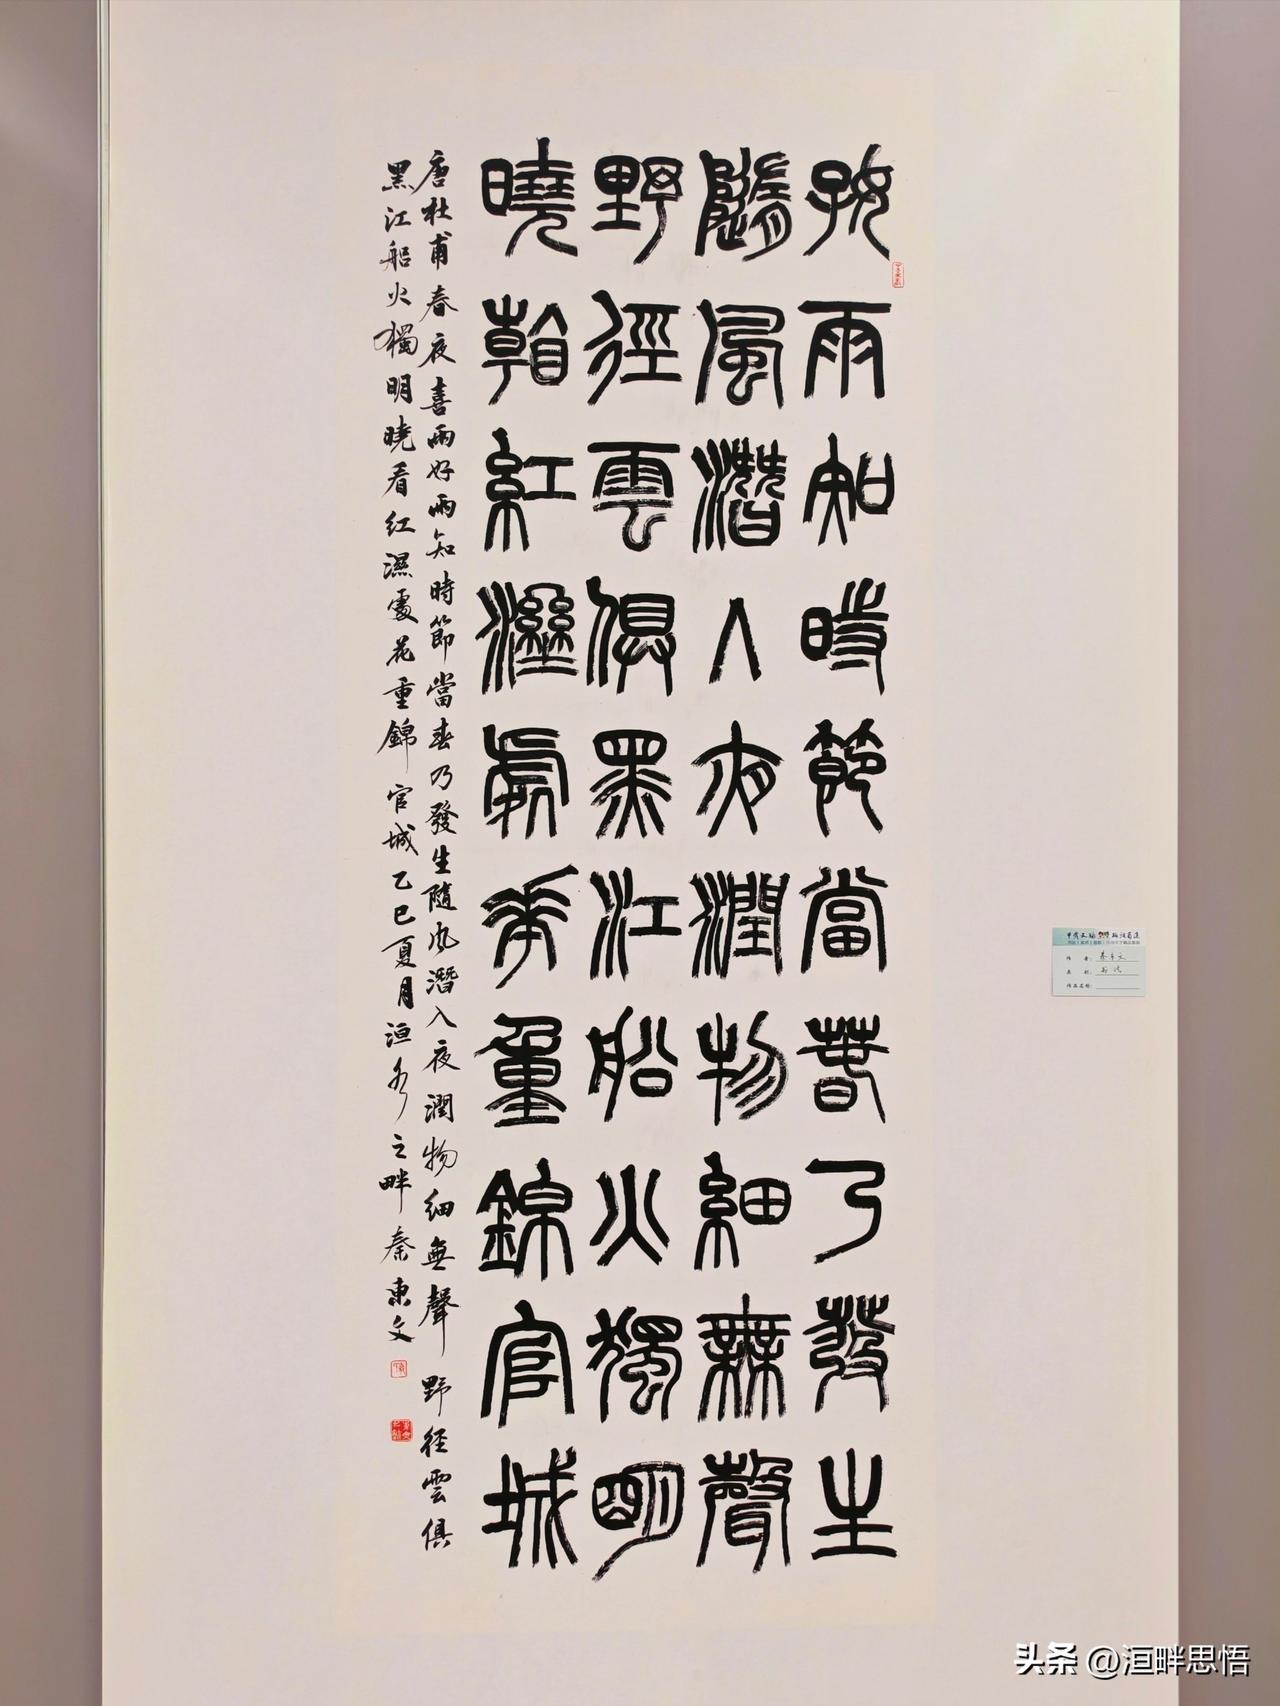 好雨知時節當春乃發生
隨風潛入夜潤物細無聲
野徑雲俱黑江船火獨明
曉看紅溼處花重錦官城
唐杜甫春夜喜雨好雨知時節當春乃發生隨風潛入夜潤物細無聲野径雲俱
黑江船火獨明曉看红濕處花重錦官城乙巳夏月洹水之畔秦东文
作者：秦东文
类别：书法
作品名称：
头条 @洹畔思悟